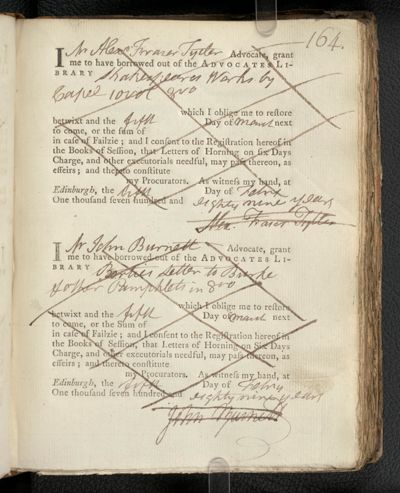 164.
I Mr Alexr Fraser Tytler Advocate, grant
me to have borrowed out of the ADVOCATES LI-
BRARY Shakespeares Works by
Capel 10 vol 8vo
which I oblige me to restore
betwixt and the fifth Day of March next
to come, or the sum of
in case of Failzie; and I consent to the Registration hereof in
the Books of Session, that Letters of Horning on six Days
Charge, and other executorials needful, may pass thereon, as
effeirs; and thereto constitute
my Procurators. As witness my hand, at
Edinburgh, the fifth Day of Febry
One thousand seven hundred and eighty nine years
Alex. Fraser Tytler
I Mr John Burnett Advocate, grant
me to have borrowed out of the ADVOCATES LI-
BRARY Letter to Burke
& other Pamphlets in 8vo
which I oblige me to restore
betwixt and the fifth Day of March next
to come, or the Sum of
in case of Failzie; and I consent to the Registration hereof in
the Books of Session, that Letters of Horning on Six Days
Charge, and other executorials needful, may pass thereon, as
effeirs; and thereto constitute
my Procurators. As witness my hand, at
Edinburgh, the fifth Day of Febry
One thousand seven hundred and eighty nine years
John Burnett